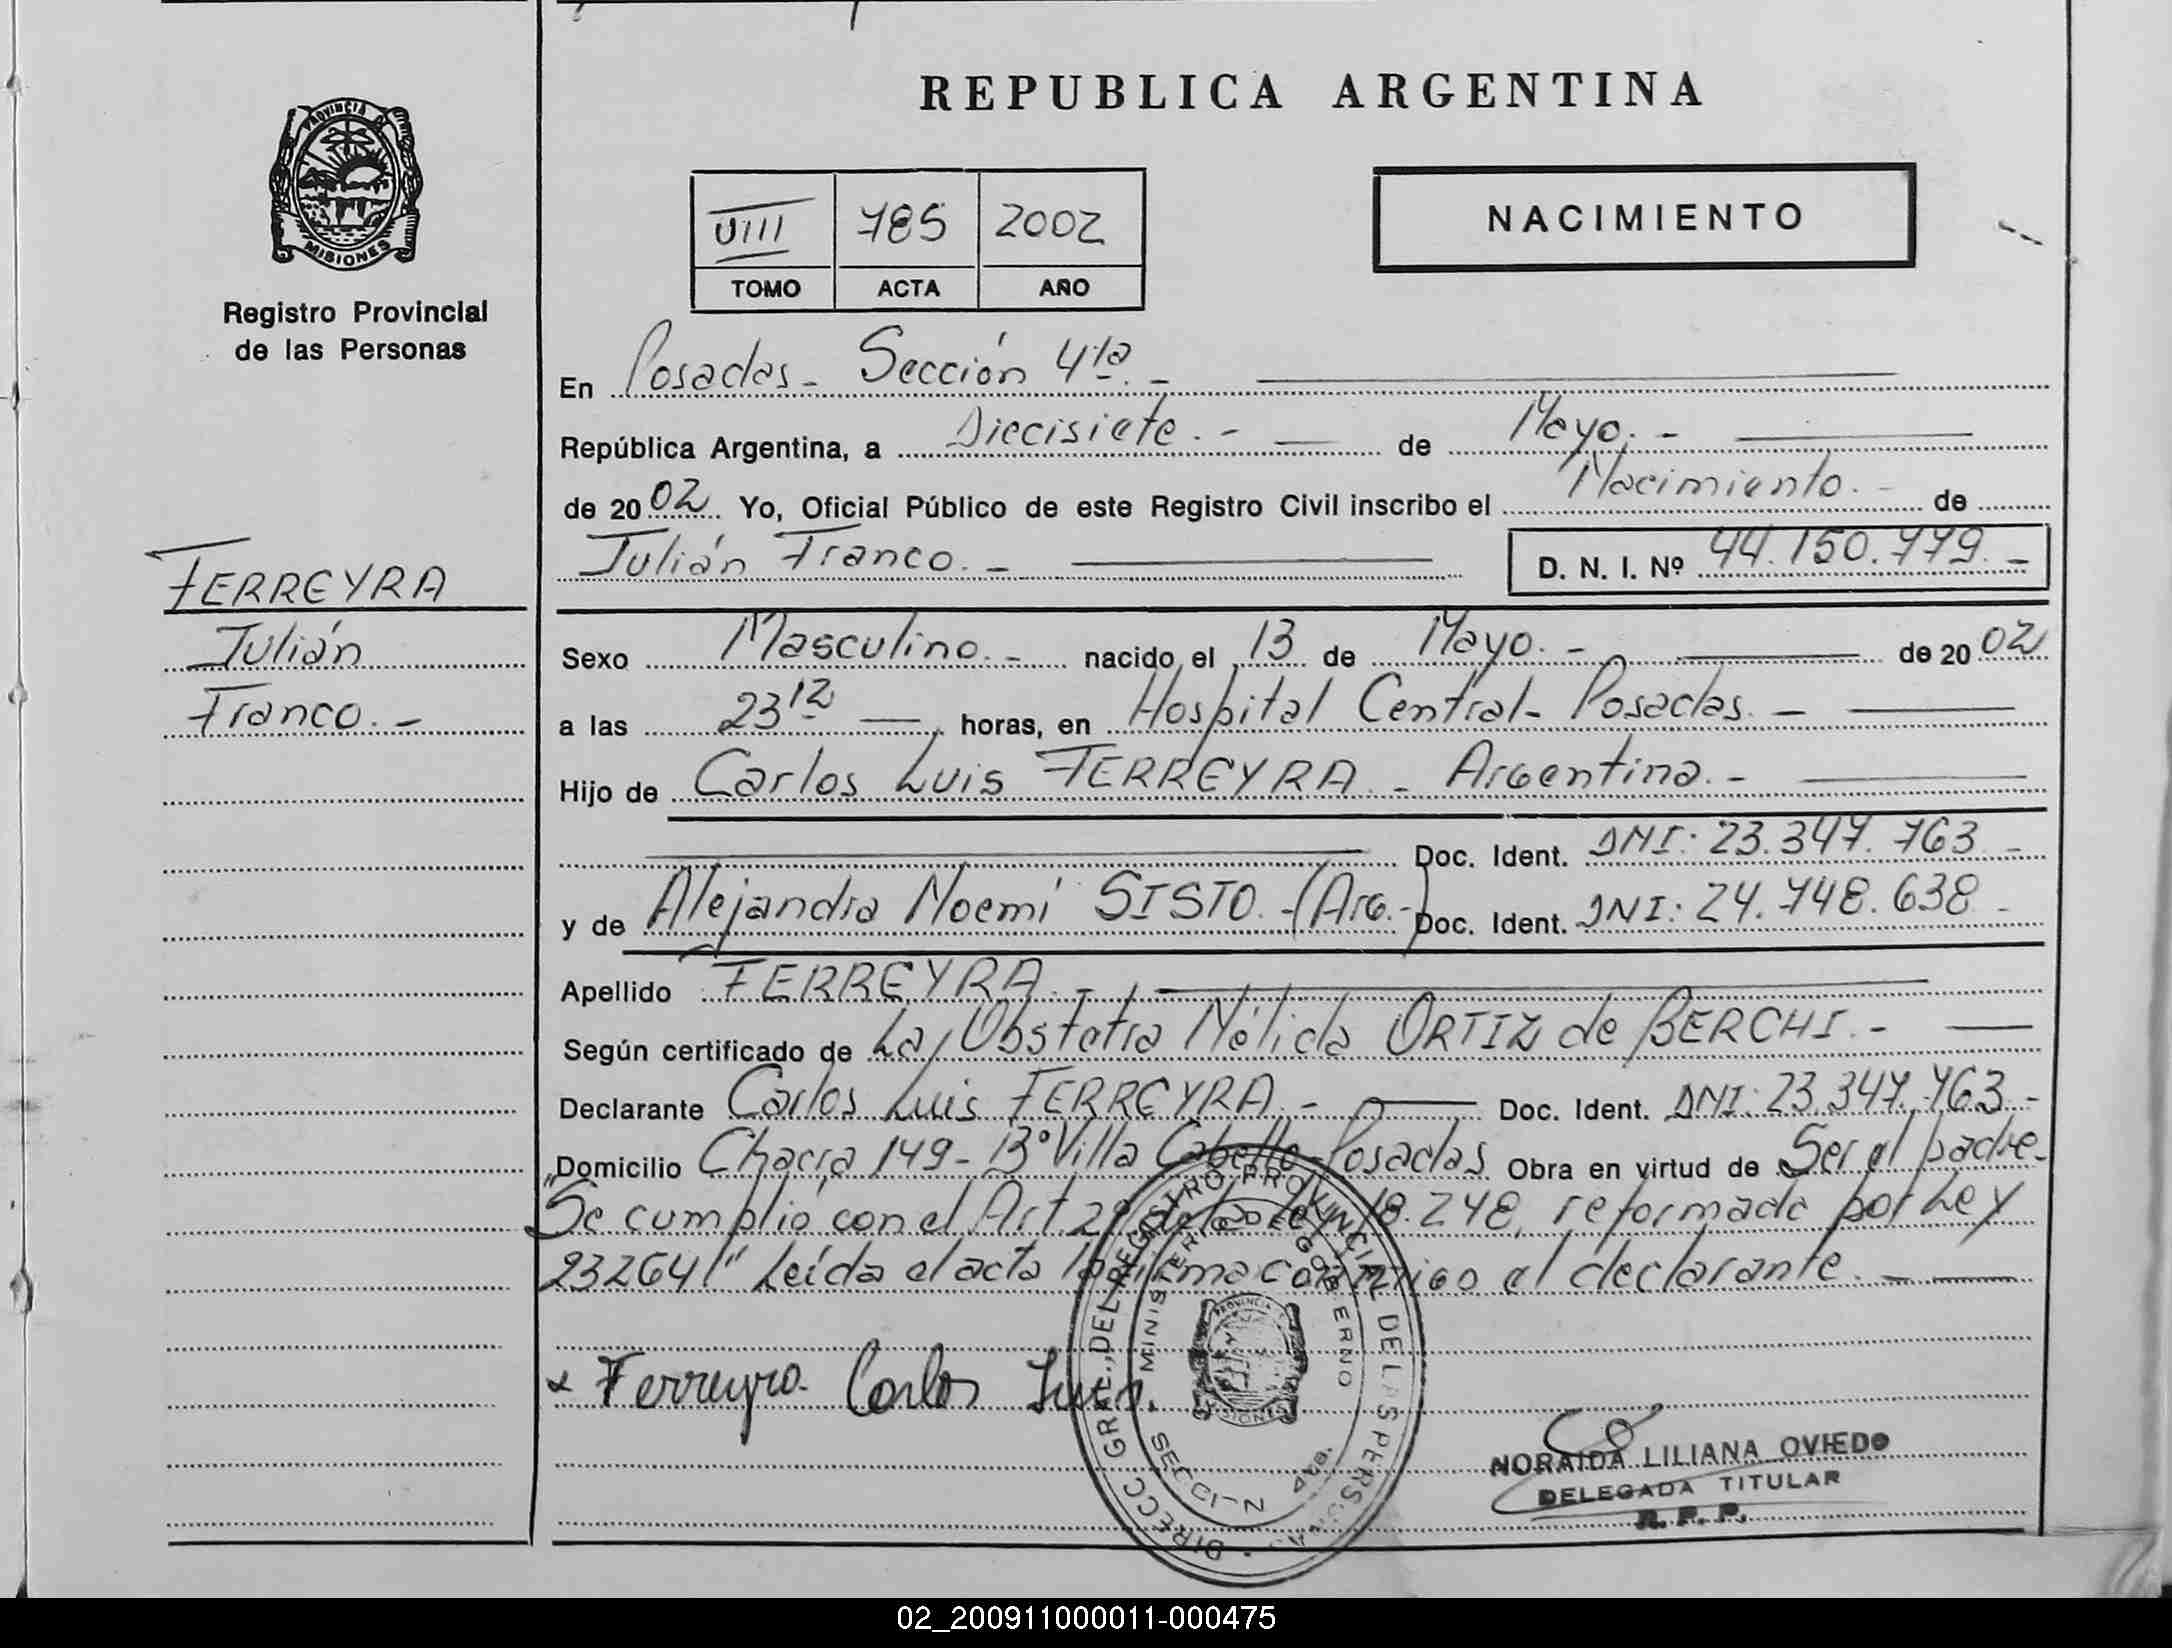 REPUBLICA ARGENTINA
PROVINCIA DE
MISIONES
Registro Provincial
de las Personas
VIII 785 2002
TOMO ACTA AÑO
NACIMIENTO
En Posadas - Sección 4ta. -
República Argentina, a Diecisiete. - de Mayo. -
de 2002 Yo, Oficial Público de este Registro Civil inscribo el Nacimiento. - de
Julián Franco. - D. N. I. Nº 44.150.779. -
FERREYRA
Julián
Franco. -
Sexo Masculino. - nacido el 13 de Mayo. - de 2002
a las 23 12 horas, en Hospital Central - Posadas. -
Hijo de Carlos Luis FERREYRA - Argentina. -
Doc. Ident. DNI: 23.347.763 -
y de Alejandra Noemí SISTO. - (Arg. -) Doc. Ident. DNI: 24.748.638 -
Apellido FERREYRA. -
Según certificado de La Obstetra Nélida ORTIZ de BERCHI. -
Declarante Carlos Luis FERREYRA. - Doc. Ident. DNI: 23.347.763. -
Domicilio Chacra 149 - Bº Villa Cabello - Posadas Obra en virtud de Ser el padre -
"Se cumplió con el Art. 2º de la Ley 18.248, reformado por Ley
23264" Leída el acta la firma conmigo el declarante. -
x Ferreyra Carlos Luis.
DIRECC GRAL. DEL REGISTRO PROVINCIAL DE LAS PERSONAS
MINISTERIO DE GOBIERNO
PROVINCIA
MISIONES
SECCION 4ta.
NORAIDA LILIANA OVIEDO
DELEGADA TITULAR
R. P. P.
02_200911000011-000475